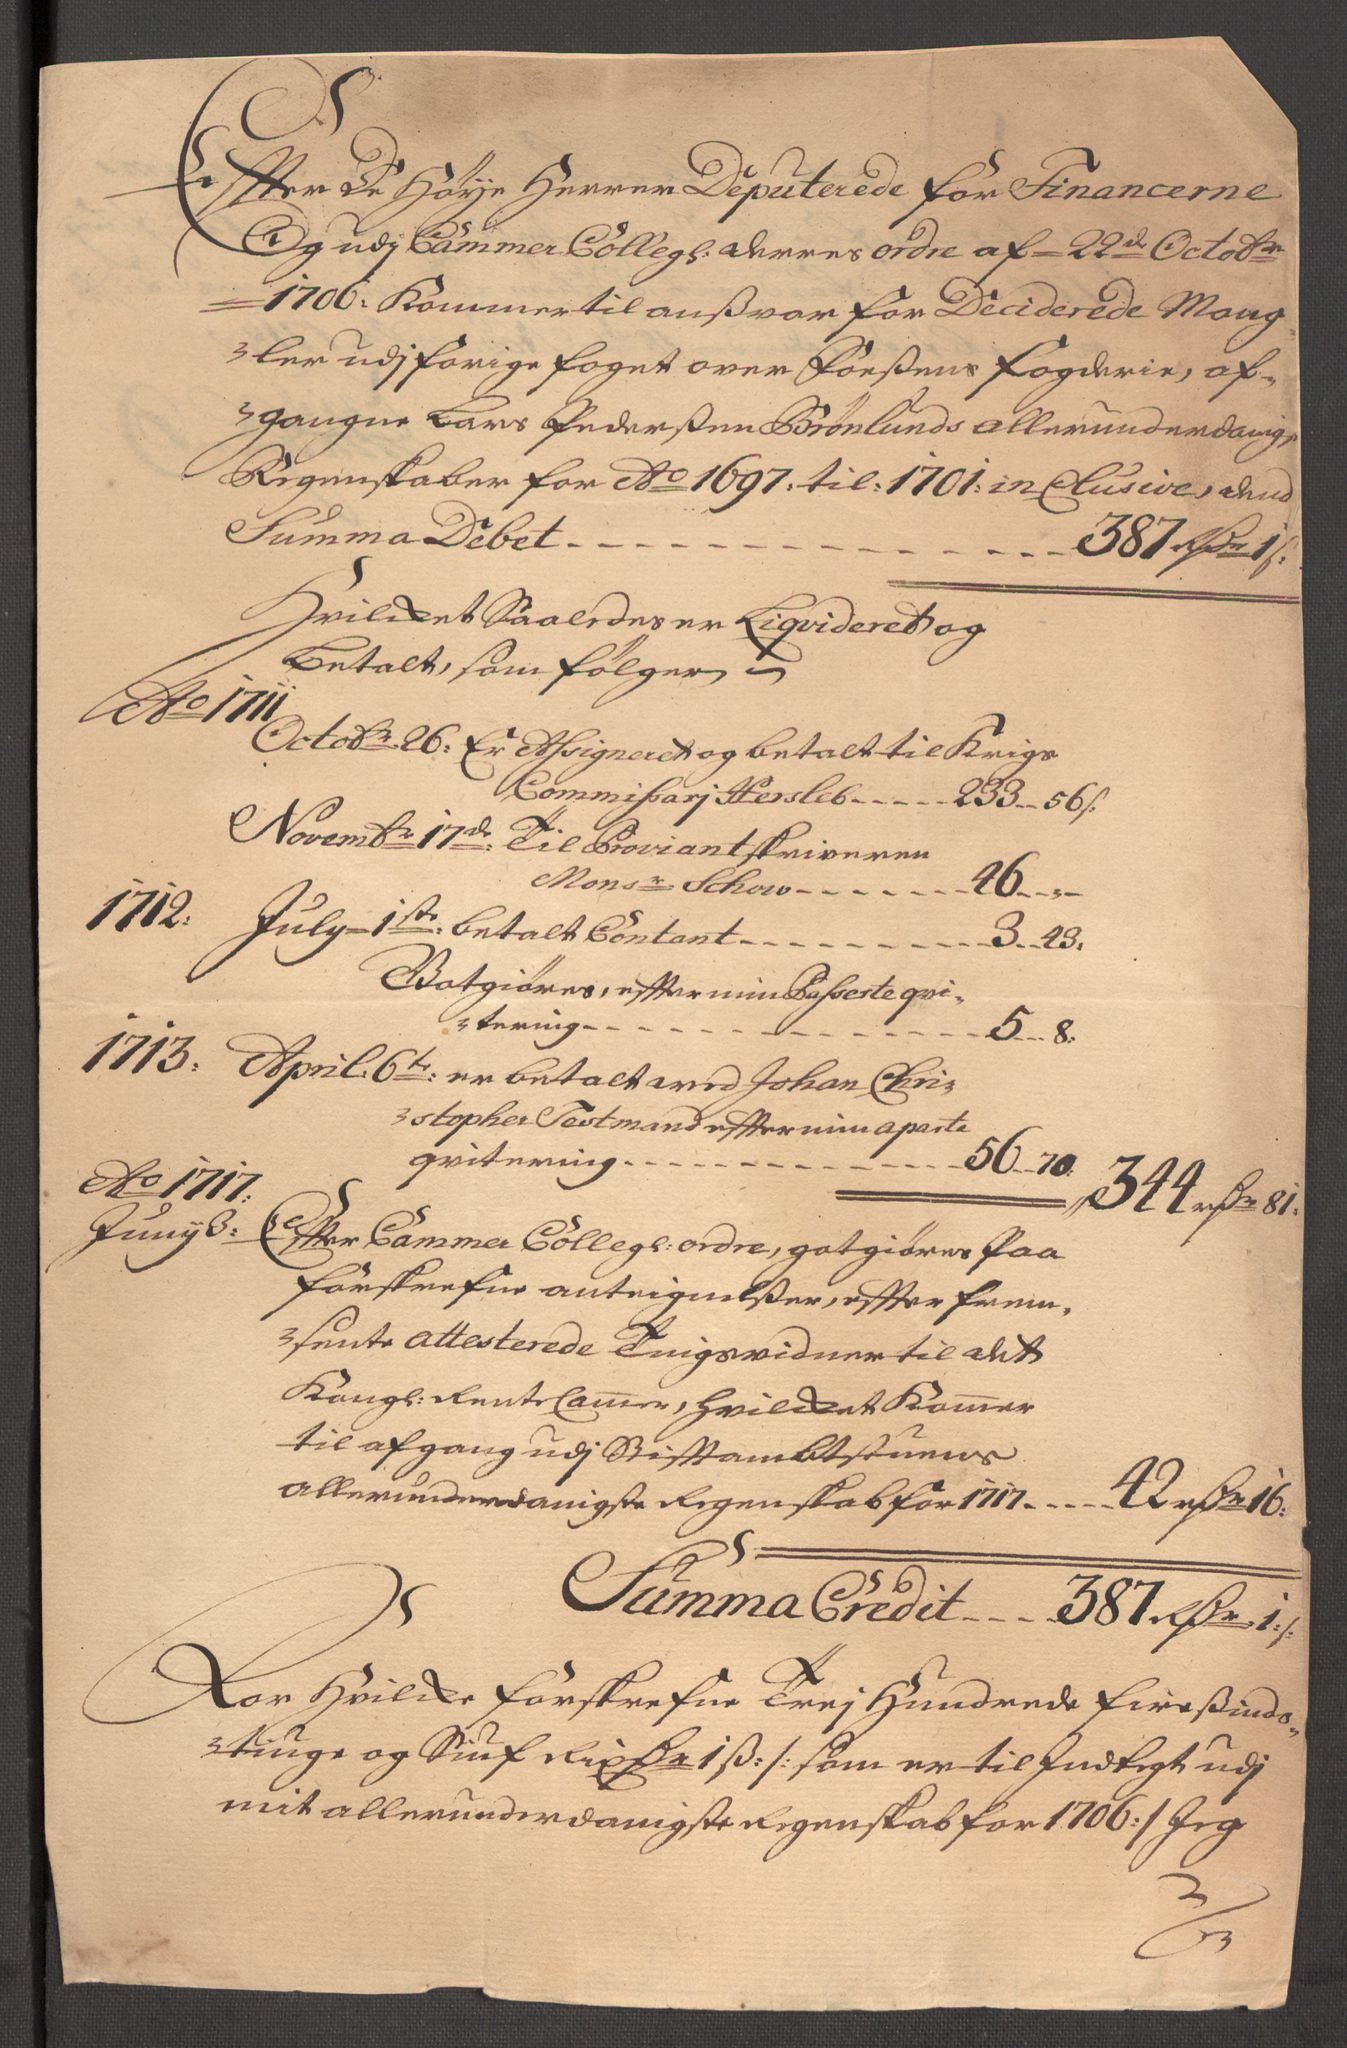 Effter De Høÿe Herrer Deputerede for Financerne
Og udj Cammer Collegl: derres ordre af 22de Octobr
1706. Kommer til ansvar for Deciderede Mang
ler udj forige foget over Foeßens fogderie, af
gangne Lars Pederßen Brønlunds allerunderdanigs
Regenskaber for Ao 1697. til: 1701: in Clusive, dend
Summa Debet - - - 387 Rdr 1 s:
Hvilcket Saaledes er Liqvideret og
betalt, som følger,
Ao 1711
Octobr 26: Er Assigneret og betalt til Krigs
Commissarj Hersleb - - - 233 - 56 s:
Novembr 17de: Til Proviantskriveren
Monsr Schow - - - 46 - „ -
1712: July 1ste: betalt Contant - - - 3 - 43:
Gotgiøres, effter min Passerte qvi
tering - - - 5 - 8:
1713: April: 6te: er betalt ved Johan Chri
stopher Testmand effter min aparte
qvitering - - - 56 - 70: 344 rdr 81:
Ao 1717:
Junÿ 3: Effter Cammer Collegl: ordre, gotgiøres paa
forskrefne anteignelßer, effter frem
sente attesterede Tingsvidner til det
Kongl: Rente Camer, hvilcket Komer
til afgang udj Stiftambtstuens
allerunderdanigste Regenskab for 1717 - - - 42 rdr 16:
Summa Credit - - - 387 Rdr 1: s:
For Hvilcke forskrefne Trej Hundrede fireßinds
tiuge og Siuf Rixdr 1 ß: /: som er til Indtegt udj
mit allerunderdanigste Regenskab for 1706: / Jeg